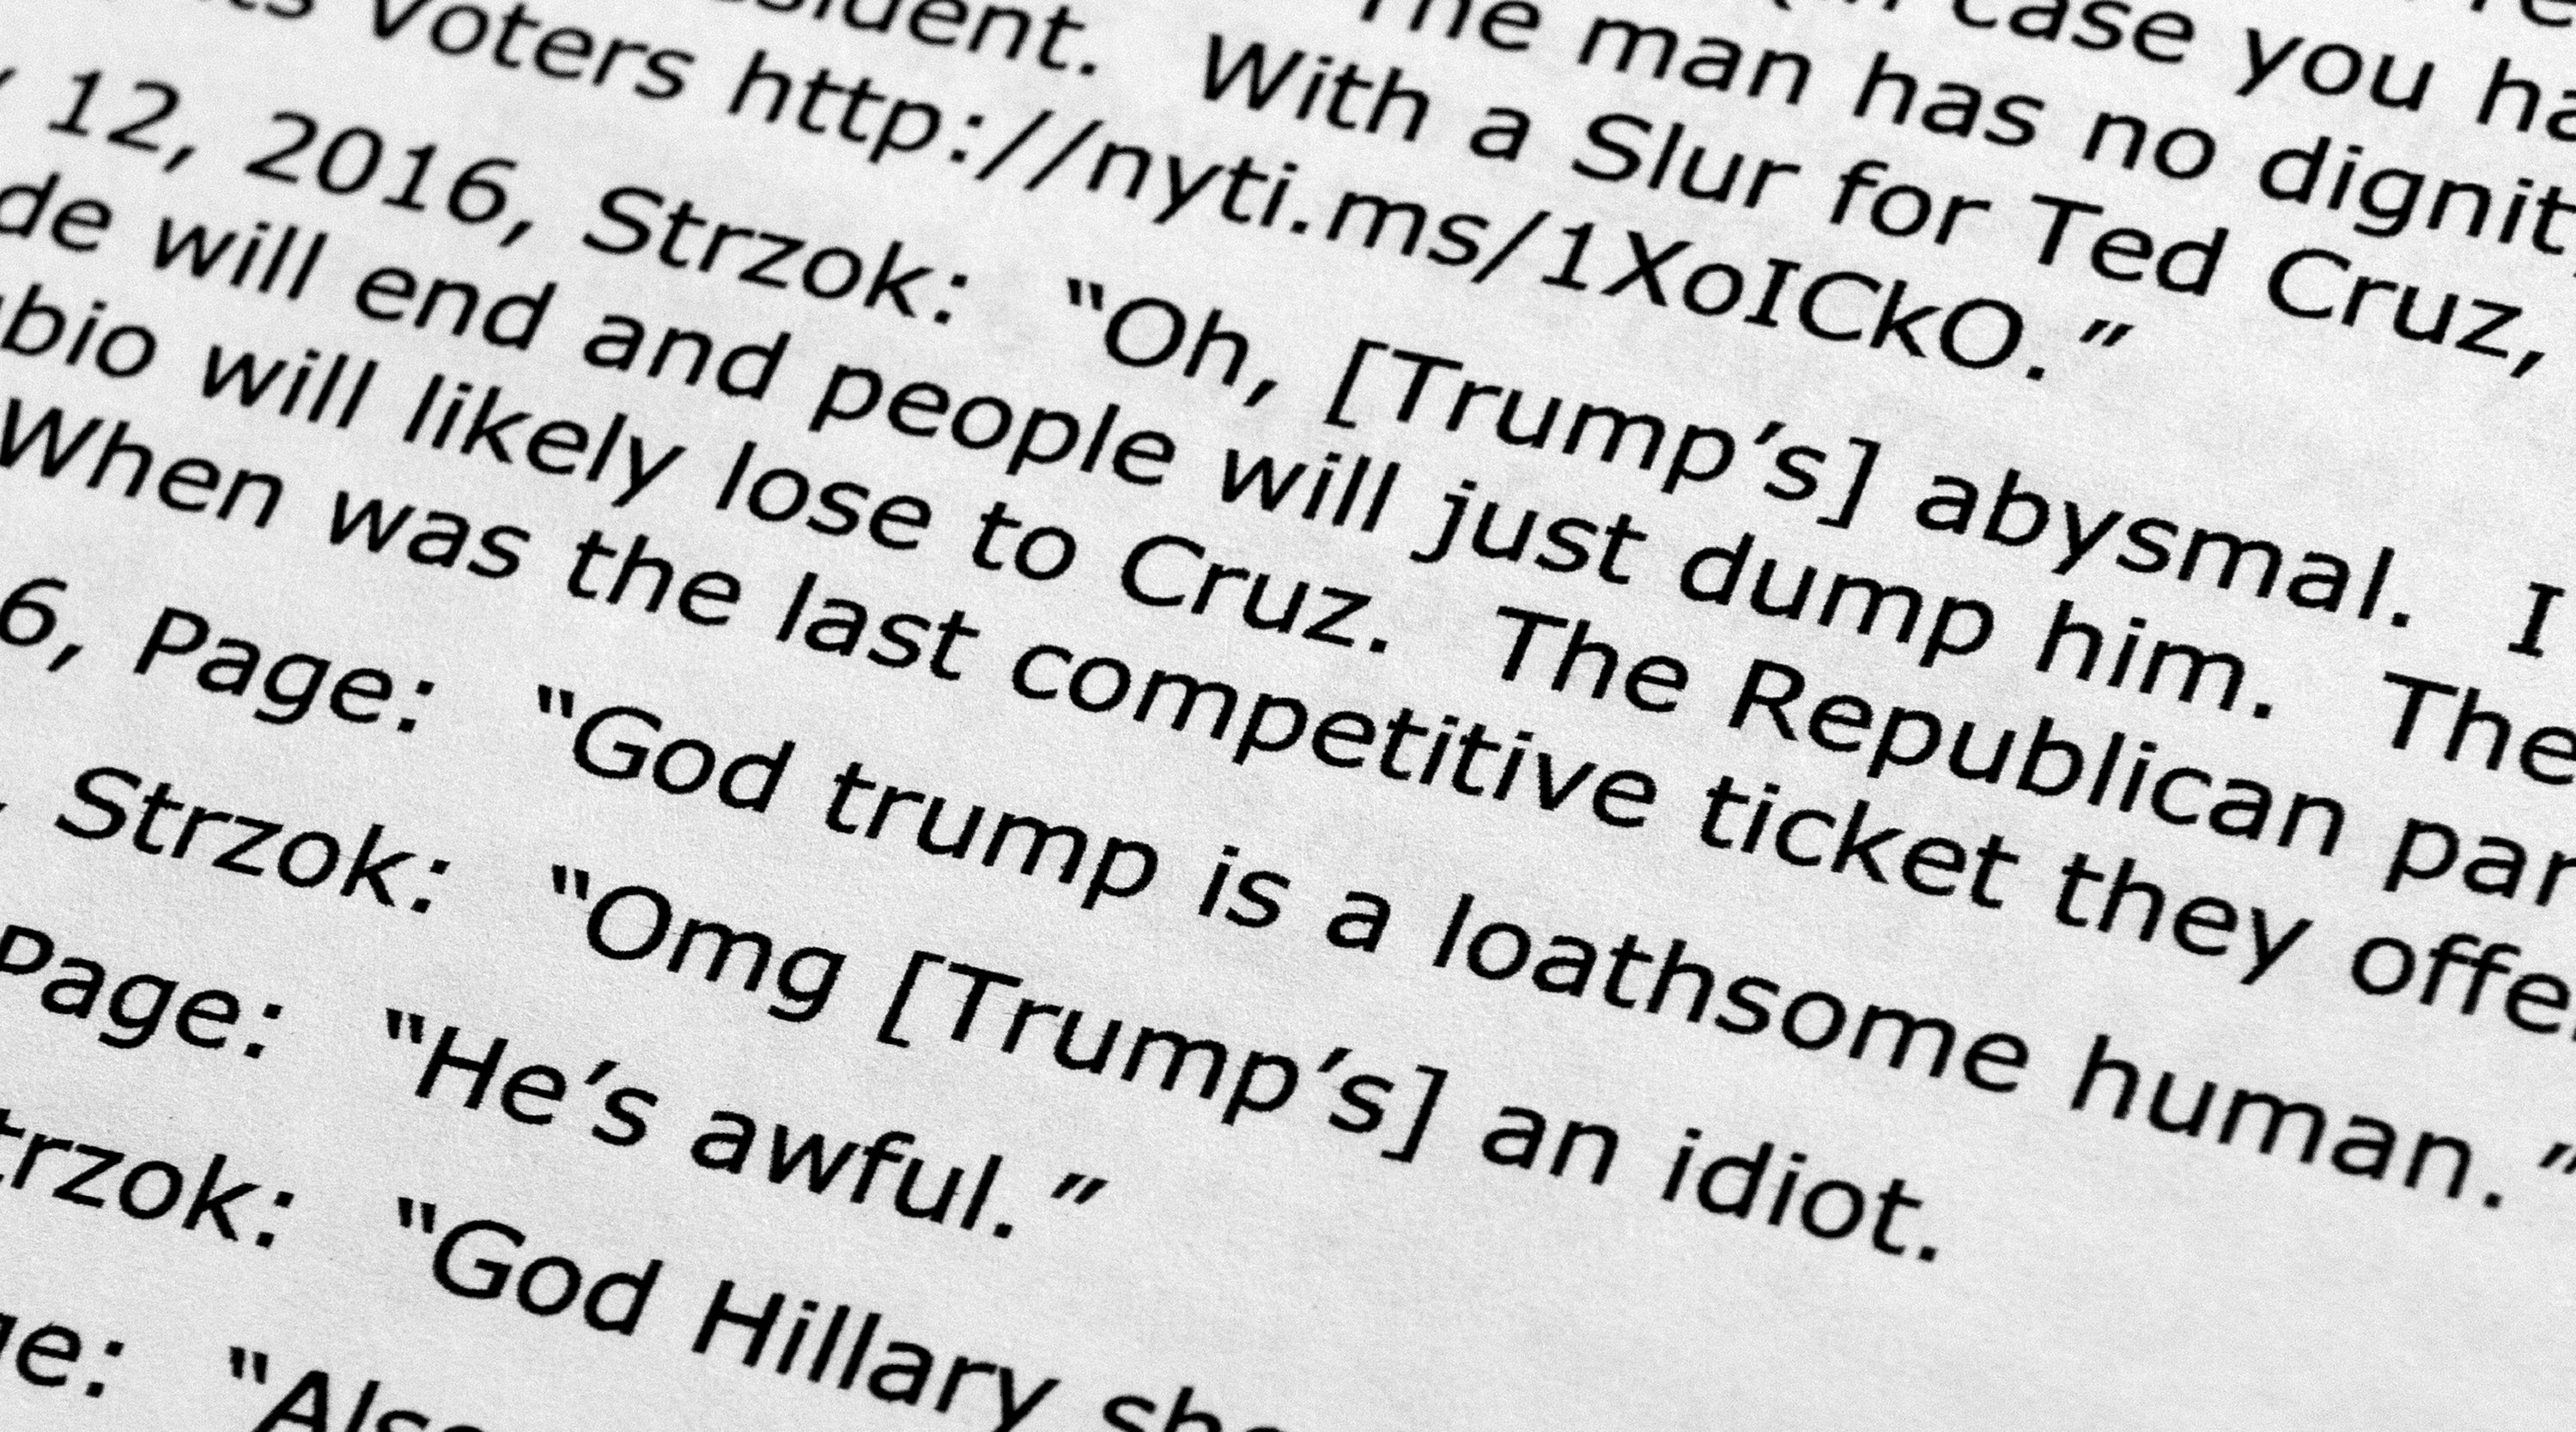 case you ha
The man has no dignit
sident. With a Slur for Ted Cruz,
ts Voters http://nyti.ms/1XoICkO.”
12, 2016, Strzok: “Oh, [Trump’s] abysmal. I
de will end and people will just dump him. The
bio will likely lose to Cruz. The Republican par
When was the last competitive ticket they offe
6, Page: “God trump is a loathsome human.”
, Strzok: “Omg [Trump’s] an idiot.
Page: “He’s awful.”
trzok: “God Hillary sh
ge: “Als